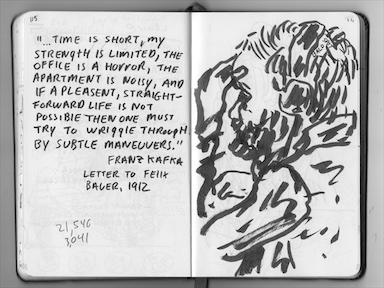 115
"...TIME IS SHORT, MY
STRENGTH IS LIMITED, THE
OFFICE IS A HORROR, THE
APARTMENT IS NOISY, AND
IF A PLEASENT, STRAIGHT-
FORWARD LIFE IS NOT
POSSIBLE THEN ONE MUST
TRY TO WRIGGLE THROUGH
BY SUBTLE MANEUVERS."
FRANZ KAFKA
LETTER TO FELIX
BAUER, 1912
21,546
3,041